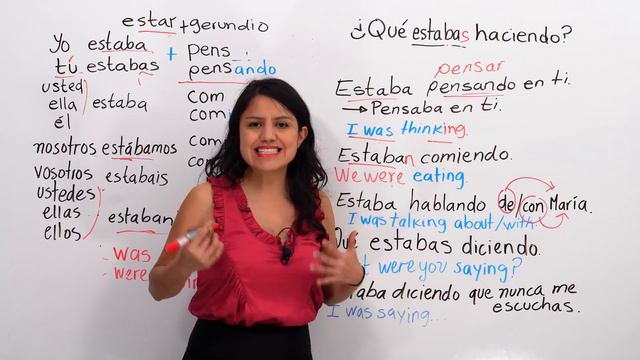 estar + gerundio
yo estaba + pens
tú estabas pensando
usted
ella estaba
él
com
com
nosotros estábamos com
vosotros estabais
ustedes
ellas estaban
ellos
was
were
¿Qué estabas haciendo?
pensar
Estaba pensando en ti.
→ Pensaba en ti.
I was thinking.
Estaban comiendo.
We were eating.
Estaba hablando de/con María.
I was talking about/with
estabas diciendo.
were you saying?
diciendo que nunca me
escuchas.
I was saying...